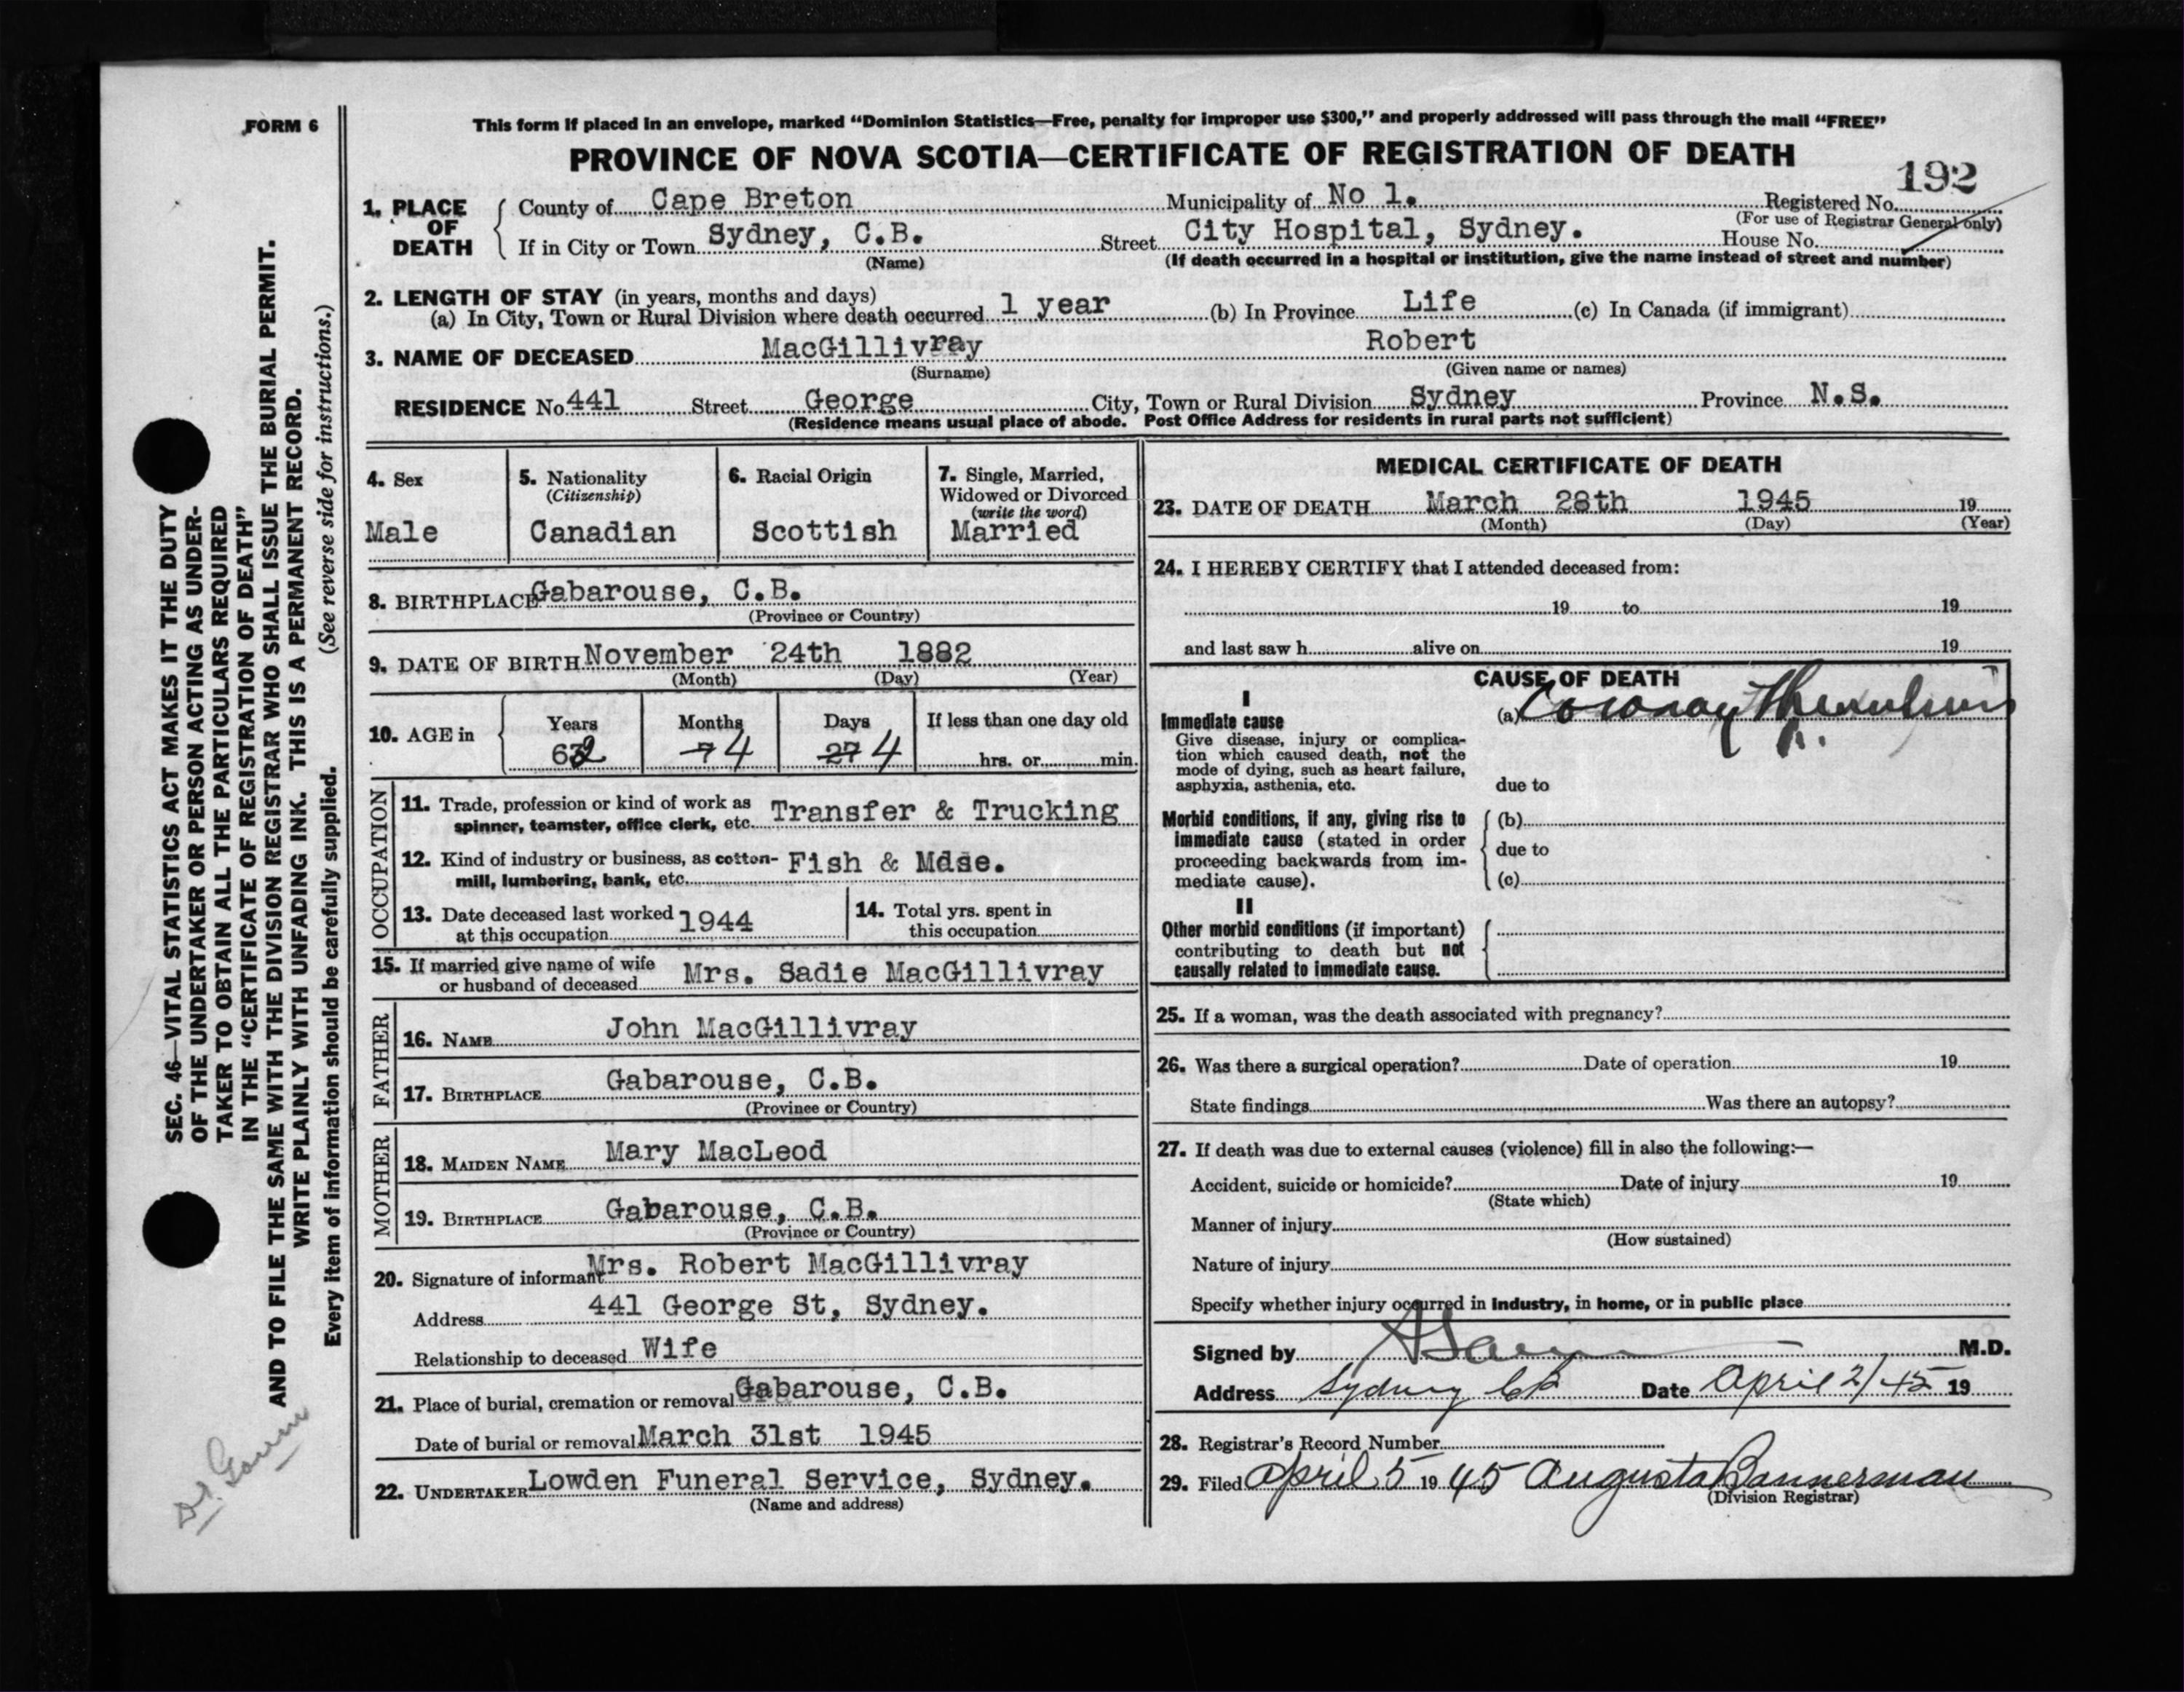 FORM 6
This form if placed in an envelope, marked “Dominion Statistics—Free, penalty for improper use $300,” and properly addressed will pass through the mail “FREE”
PROVINCE OF NOVA SCOTIA—CERTIFICATE OF REGISTRATION OF DEATH
192
1. PLACE OF DEATH
County of Cape Breton Municipality of No 1. Registered No.
(For use of Registrar General only)
If in City or Town Sydney, C.B. Street City Hospital, Sydney. House No.
(Name) (If death occurred in a hospital or institution, give the name instead of street and number)
2. LENGTH OF STAY (in years, months and days)
(a) In City, Town or Rural Division where death occurred 1 year (b) In Province Life (c) In Canada (if immigrant)
3. NAME OF DECEASED MacGillivray Robert
(Surname) (Given name or names)
RESIDENCE No 441 Street George City, Town or Rural Division Sydney Province N.S.
(Residence means usual place of abode. Post Office Address for residents in rural parts not sufficient)
4. Sex
Male
5. Nationality
(Citizenship)
Canadian
6. Racial Origin
Scottish
7. Single, Married,
Widowed or Divorced
(write the word)
Married
8. BIRTHPLACE Gabarouse, C.B.
(Province or Country)
9. DATE OF BIRTH November 24th 1882
(Month) (Day) (Year)
10. AGE in
Years Months Days If less than one day old
62 7 4 27 4 hrs. or min.
OCCUPATION
11. Trade, profession or kind of work as
spinner, teamster, office clerk, etc. Transfer & Trucking
12. Kind of industry or business, as cotton-
mill, lumbering, bank, etc. Fish & Mdse.
13. Date deceased last worked
at this occupation 1944
14. Total yrs. spent in
this occupation
15. If married give name of wife
or husband of deceased Mrs. Sadie MacGillivray
FATHER
16. NAME John MacGillivray
17. BIRTHPLACE Gabarouse, C.B.
(Province or Country)
MOTHER
18. MAIDEN NAME Mary MacLeod
19. BIRTHPLACE Gabarouse, C.B.
(Province or Country)
20. Signature of informant Mrs. Robert MacGillivray
Address 441 George St, Sydney.
Relationship to deceased Wife
21. Place of burial, cremation or removal Gabarouse, C.B.
Date of burial or removal March 31st 1945
22. UNDERTAKER Lowden Funeral Service, Sydney.
(Name and address)
MEDICAL CERTIFICATE OF DEATH
23. DATE OF DEATH March 28th 1945 19
(Month) (Day) (Year)
24. I HEREBY CERTIFY that I attended deceased from:
19 to 19
and last saw h alive on 19
CAUSE OF DEATH
I
Immediate cause
Give disease, injury or complica-
tion which caused death, not the
mode of dying, such as heart failure,
asphyxia, asthenia, etc.
(a) Coronary Thrombosis
due to
Morbid conditions, if any, giving rise to
immediate cause (stated in order
proceeding backwards from im-
mediate cause).
(b)
due to
(c)
II
Other morbid conditions (if important)
contributing to death but not
causally related to immediate cause.
25. If a woman, was the death associated with pregnancy?
26. Was there a surgical operation? Date of operation 19
State findings Was there an autopsy?
27. If death was due to external causes (violence) fill in also the following:—
Accident, suicide or homicide? Date of injury 19
(State which)
Manner of injury
(How sustained)
Nature of injury
Specify whether injury occurred in industry, in home, or in public place
Signed by M.D.
Address Sydney CB Date April 2/45 19
28. Registrar's Record Number
29. Filed April 5 1945 Augusta Bannerman
(Division Registrar)
SEC. 46—VITAL STATISTICS ACT MAKES IT THE DUTY
OF THE UNDERTAKER OR PERSON ACTING AS UNDER-
TAKER TO OBTAIN ALL THE PARTICULARS REQUIRED
IN THE “CERTIFICATE OF REGISTRATION OF DEATH”
AND TO FILE THE SAME WITH THE DIVISION REGISTRAR WHO SHALL ISSUE THE BURIAL PERMIT.
WRITE PLAINLY WITH UNFADING INK. THIS IS A PERMANENT RECORD.
Every item of information should be carefully supplied. (See reverse side for instructions.)
Dr.